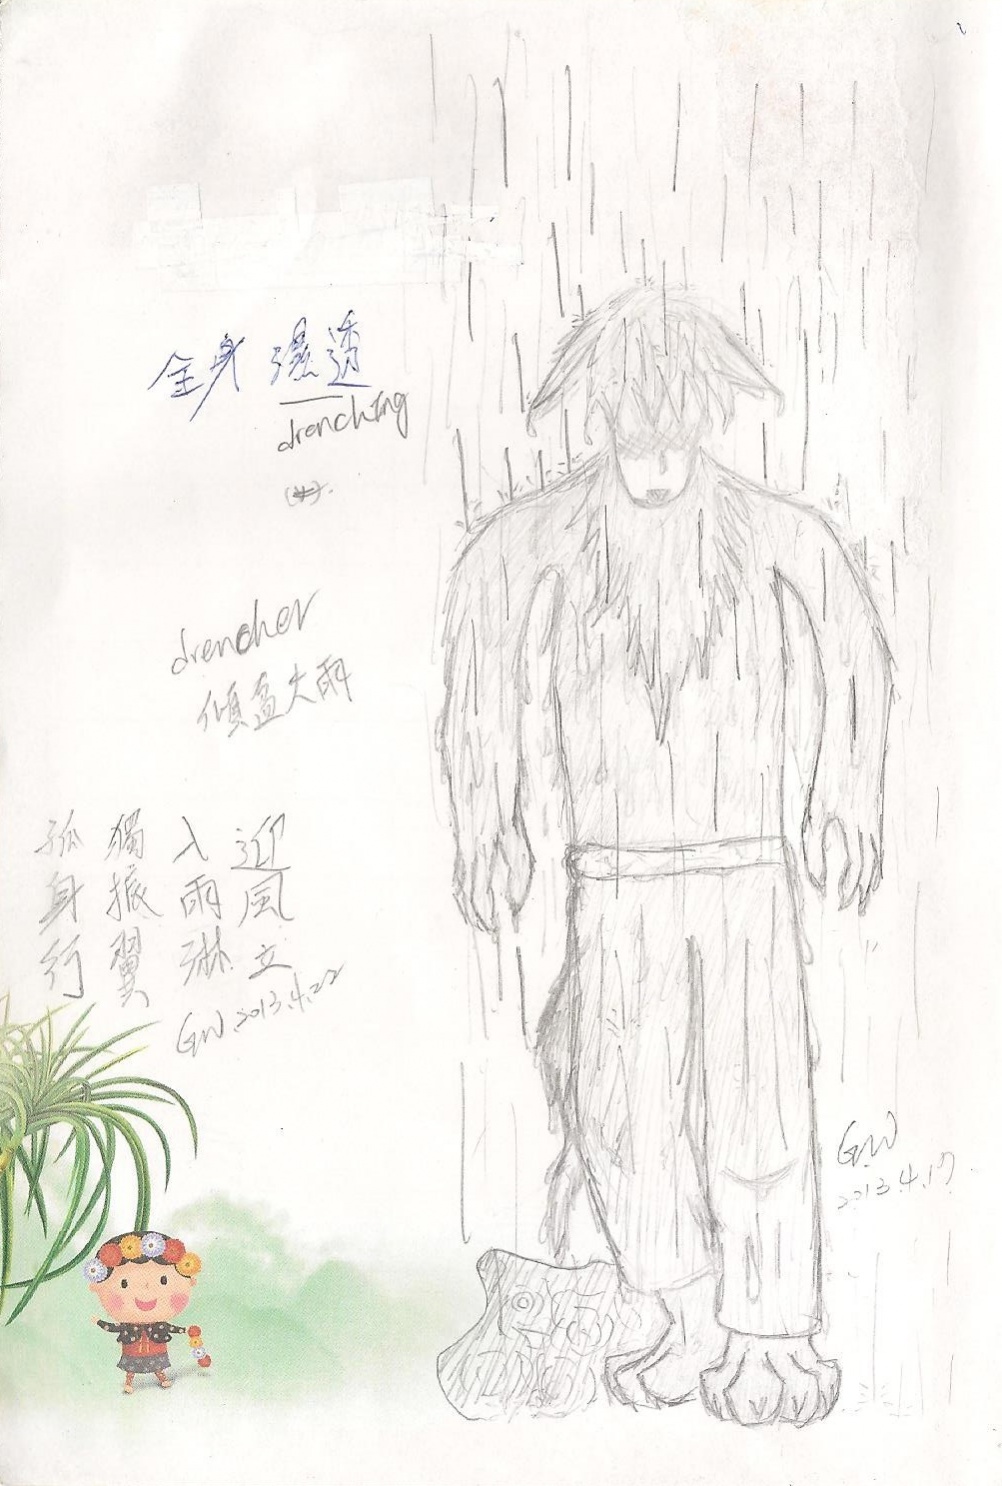 全身 濕透
drenching
drencher
傾盆大雨
迎風立
入雨淋
獨振翼
孤身行
GW.2013.4.22
GW
2013.4.17